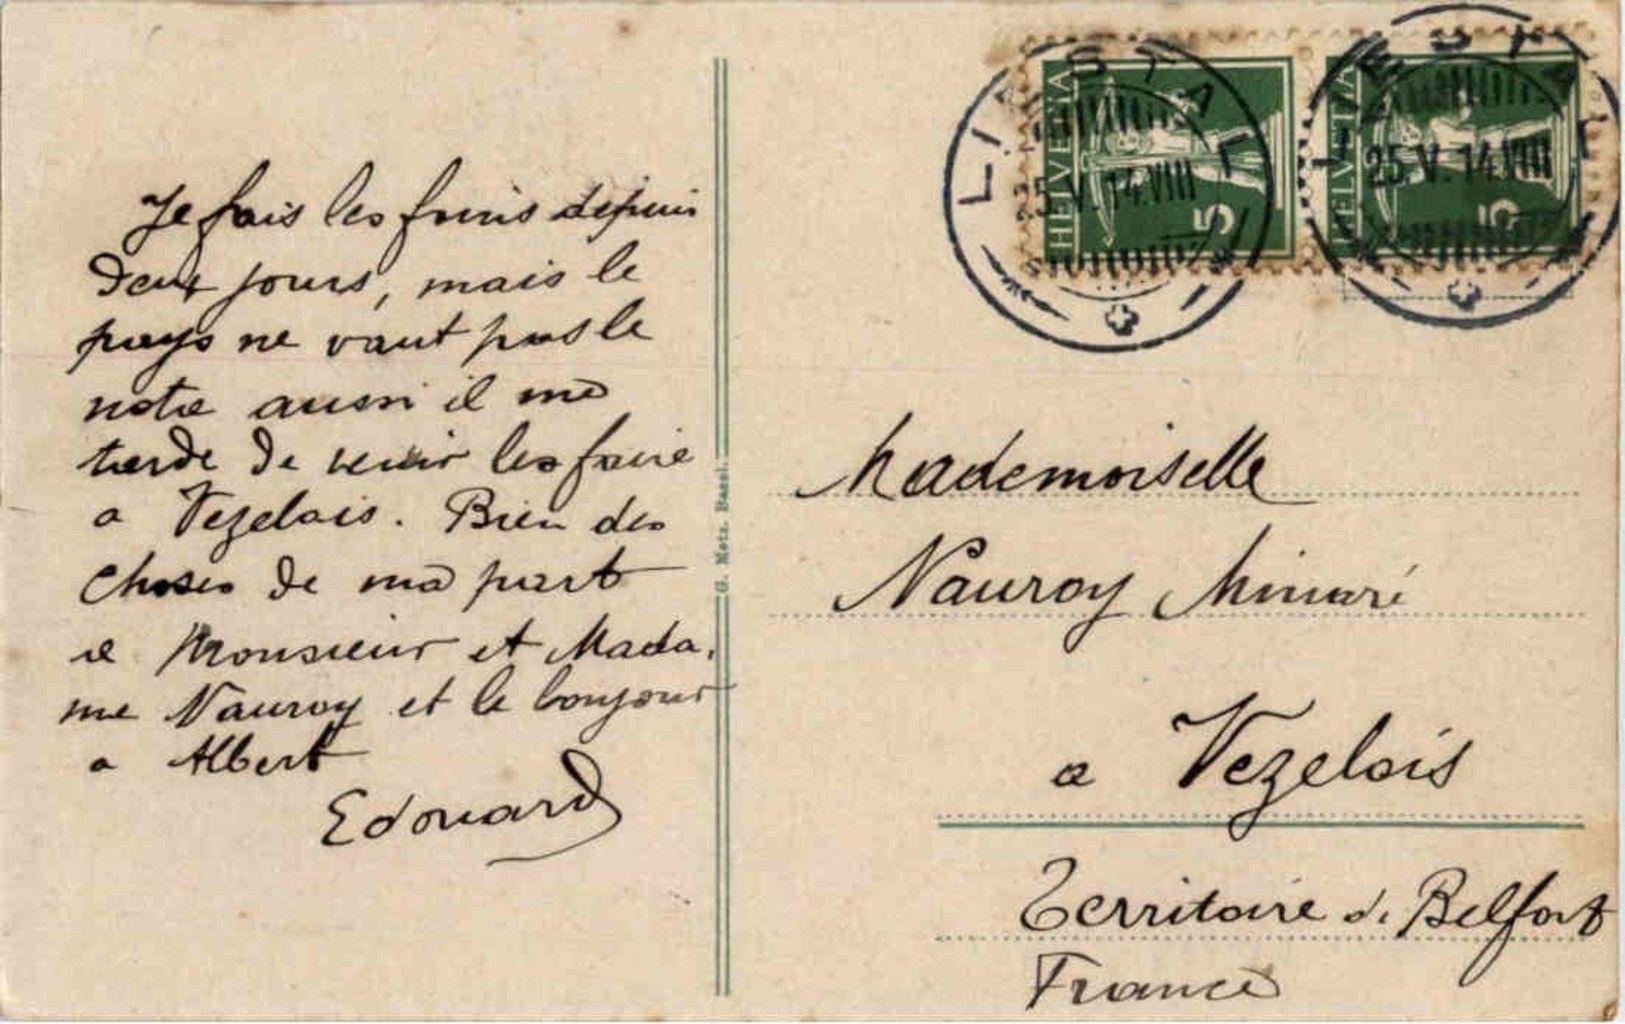 Je fais les foins depuis
deux jours, mais le
pays ne vaut pas le
notre aussi il me
tarde de venir les faire
a Vezelois. Bien des
choses de ma part
a Monsieur et Mada.
me Nauroy et le bonjour
a Albert
Edouard
G. Metz, Basel.
LIESTAL
25.V.14.VIII
HELVETIA
5
LIESTAL
25.V.14.VIII
HELVETIA
5
Mademoiselle
Nauroy
a Vezelois
Territoire de Belfort
France